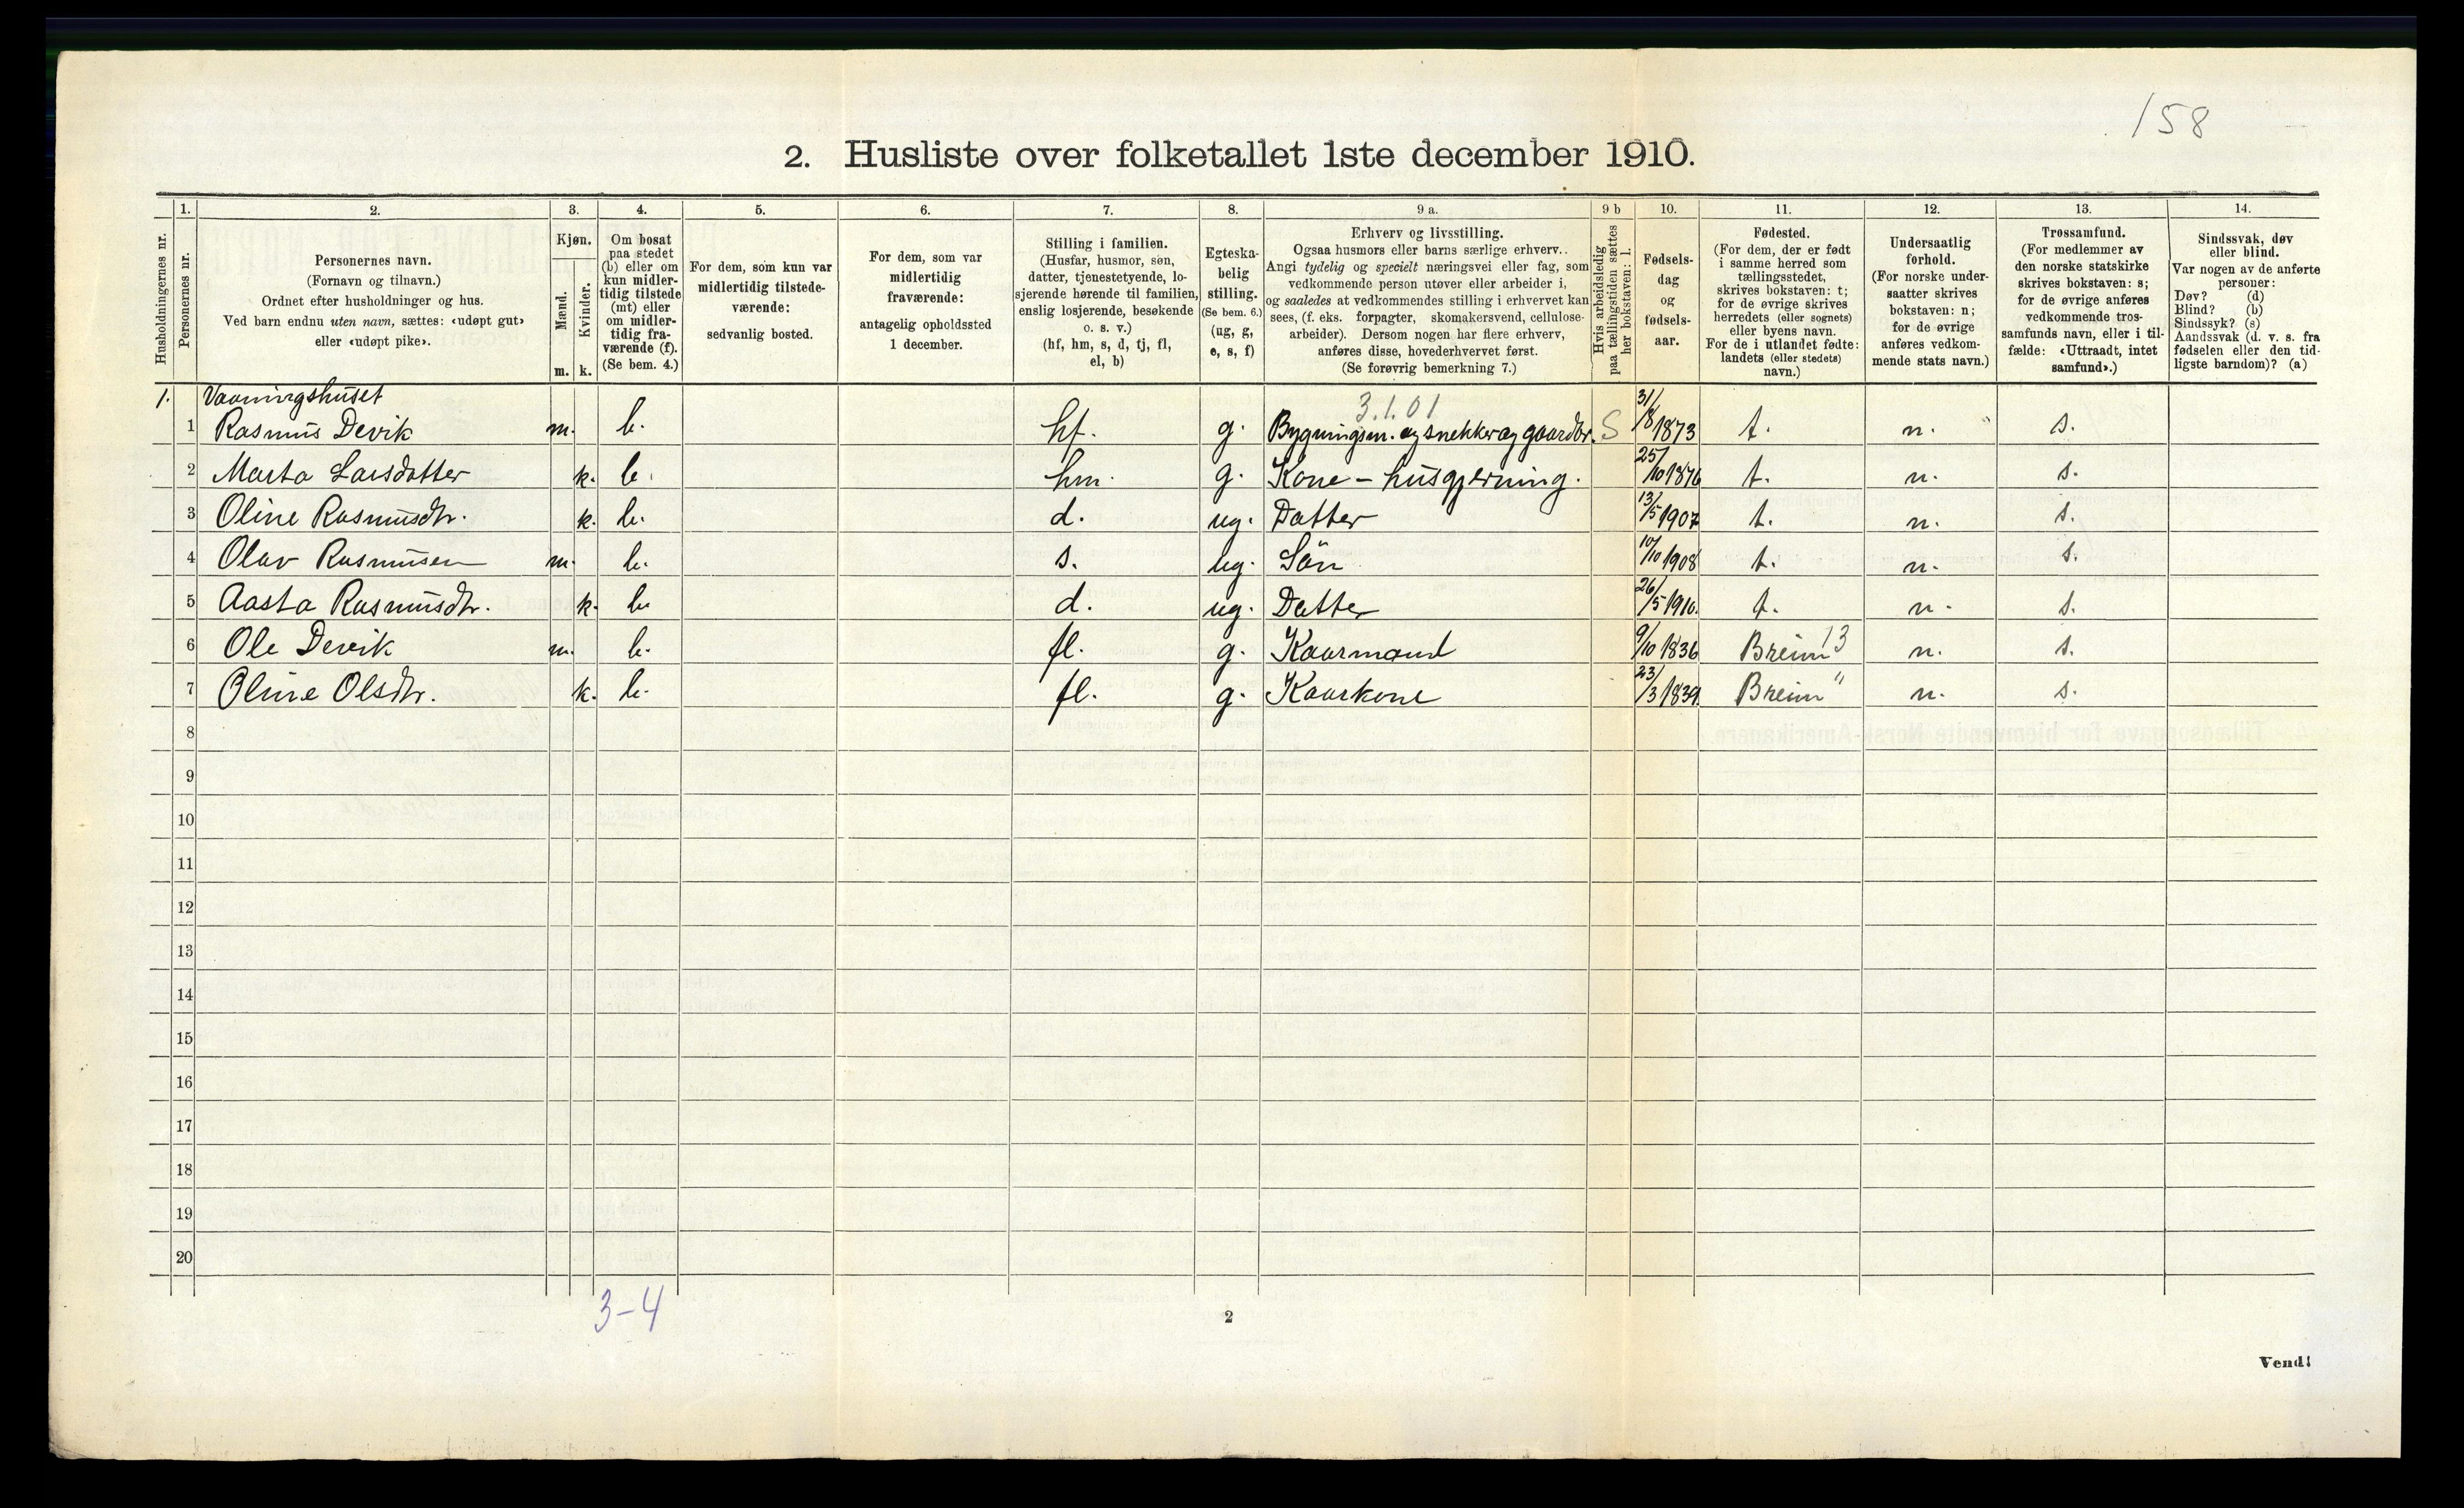 158
2. Husliste over folketallet 1ste december 1910.
Husholdningernes nr.
1.
Personernes nr.
2.
Personernes navn.
(Fornavn og tilnavn.)
Ordnet efter husholdninger og hus.
Ved barn endnu uten navn, sættes: «udøpt gut»
eller «udøpt pike».
3.
Kjøn.
Mænd.
Kvinder.
m. k.
4.
Om bosat
paa stedet
(b) eller om
kun midler-
tidig tilstede
(mt) eller
om midler-
tidig fra-
værende (f).
(Se bem. 4.)
5.
For dem, som kun var
midlertidig tilstede-
værende:
sedvanlig bosted.
6.
For dem, som var
midlertidig
fraværende:
antagelig opholdssted
1 december.
7.
Stilling i familien.
(Husfar, husmor, søn,
datter, tjenestetyende, lo-
sjerende hørende til familien,
enslig losjerende, besøkende
o. s. v.)
(hf, hm, s, d, tj, fl,
el, b)
8.
Egteska-
belig
stilling.
(Se bem. 6.)
(ug, g,
e, s, f)
9 a.
Erhverv og livsstilling.
Ogsaa husmors eller barns særlige erhverv..
Angi tydelig og specielt næringsvei eller fag, som
vedkommende person utøver eller arbeider i,
og saaledes at vedkommendes stilling i erhvervet kan
sees, (f. eks. forpagter, skomakersvend, cellulose-
arbeider). Dersom nogen har flere erhverv,
anføres disse, hovederhvervet først.
(Se forøvrig bemerkning 7.)
9 b
Hvis arbeidsledig
paa tællingstiden sættes
her bokstaven: l.
10.
Fødsels-
dag
og
fødsels-
aar.
11.
Fødested.
(For dem, der er født
i samme herred som
tællingsstedet,
skrives bokstaven: t;
for de øvrige skrives
herredets (eller sognets)
eller byens navn.
For de i utlandet fødte:
landets (eller stedets)
navn.)
12.
Undersaatlig
forhold.
(For norske under-
saatter skrives
bokstaven: n;
for de øvrige
anføres vedkom-
mende stats navn.)
13.
Trossamfund.
(For medlemmer av
den norske statskirke
skrives bokstaven: s;
for de øvrige anføres
vedkommende tros-
samfunds navn, eller i til-
fælde: «Uttraadt, intet
samfund».)
14.
Sindssvak, døv
eller blind.
Var nogen av de anførte
personer:
Døv? (d)
Blind? (b)
Sindssyk? (s)
Aandssvak (d. v. s. fra
fødselen eller den tid-
ligste barndom)? (a)
1. Vaaningshuset 3.1.01
1 Rasmus Devik m. b. hf. g. Bygningsm. og snekker og gaardbr. S 31/8 1873 t. n. s.
2 Marta Larsdatter k. b. hm. g. Kone - husgjerning. 25/10 1876 t. n. s.
3 Oline Rasmusdtr. k. b. d. ug. Datter 13/5 1907 t. n. s.
4 Olav Rasmusen m. b. s. ug. Sön 10/10 1908 t. n. s.
5 Aasta Rasmusdtr. k. b. d. ug. Datter 26/5 1910. t. n. s.
6 Ole Devik m. b. fl. g. Kaarmand 9/10 1836 Breim 13 n. s.
7 Oline Olsdtr. k. b. fl. g. Kaarkone 23/3 1839. Breim " n. s.
8
9
10
11
12
13
14
15
16
17
18
19
20
3-4
2
Vend!